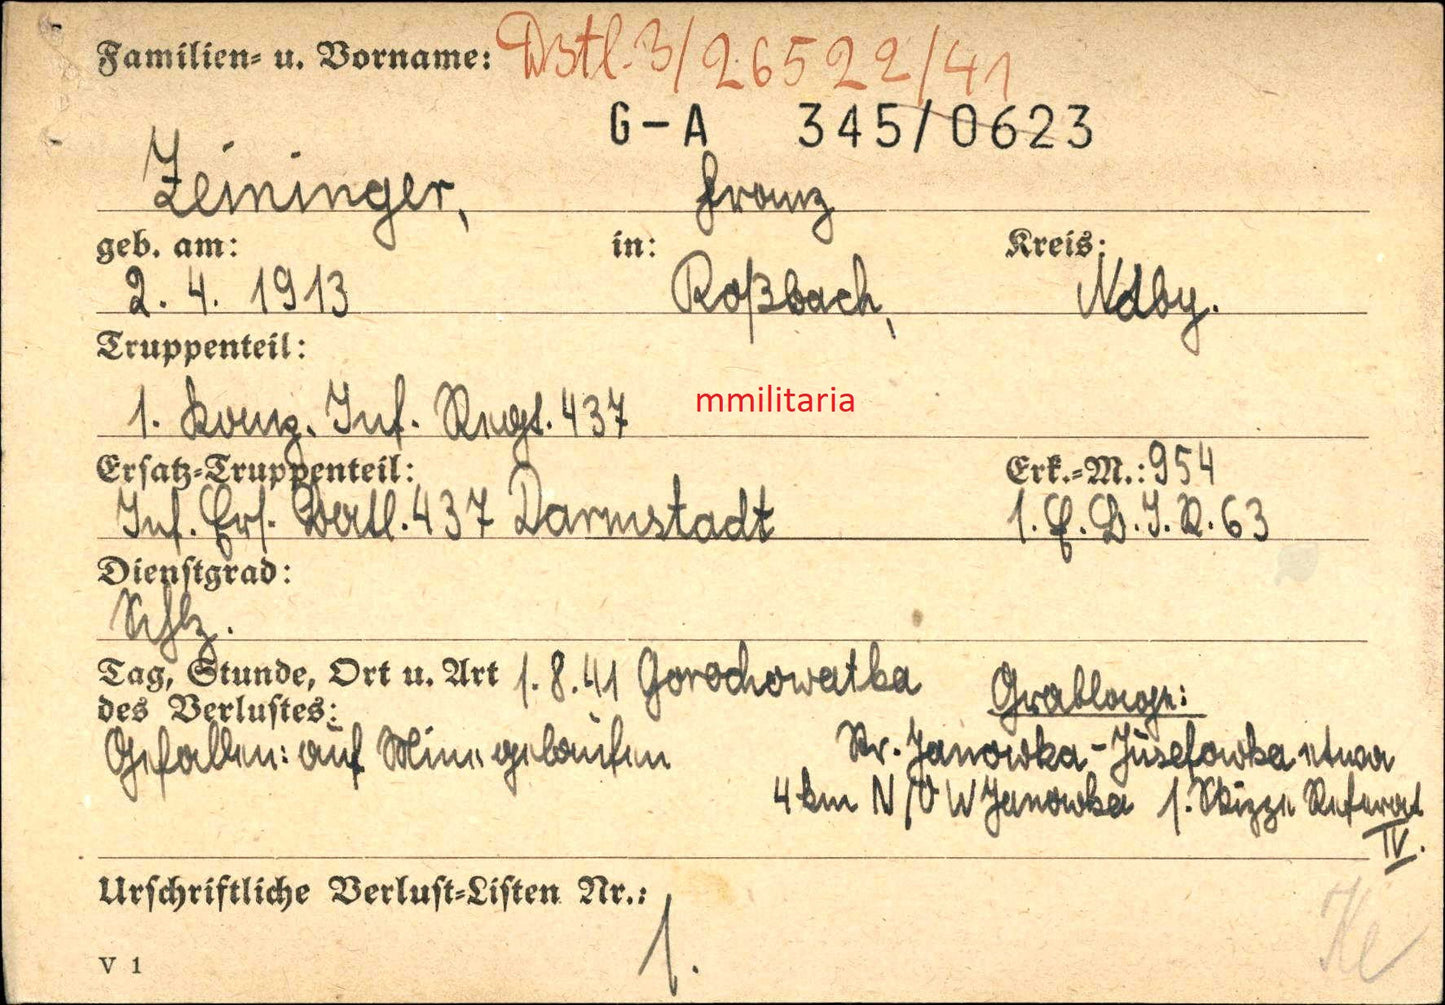 Familien- u. Vorname: Dstl. 3/26522/41
G-A 345/0623
Zeininger, Franz
geb. am: in: Kreis:
2. 4. 1913 Roßbach, Ndby.
Truppenteil:
1. Komp. Inf. Regt. 437
mmilitaria
Ersatz-Truppenteil: Erk.-M.: 954
Inf. Ers. Batl. 437 Darmstadt 1. E. B. I. R. 63
Dienstgrad:
Schtz.
Tag, Stunde, Ort u. Art 1. 8. 41 Gorochowatka Grablage:
des Verlustes:
Gefallen: auf Mine gelaufen Str. Janowka - Jusefowka etwa
4 km N/O W Janowka Skizze Referat
IV.
Urschriftliche Verlust-Listen Nr.:
1.
V 1